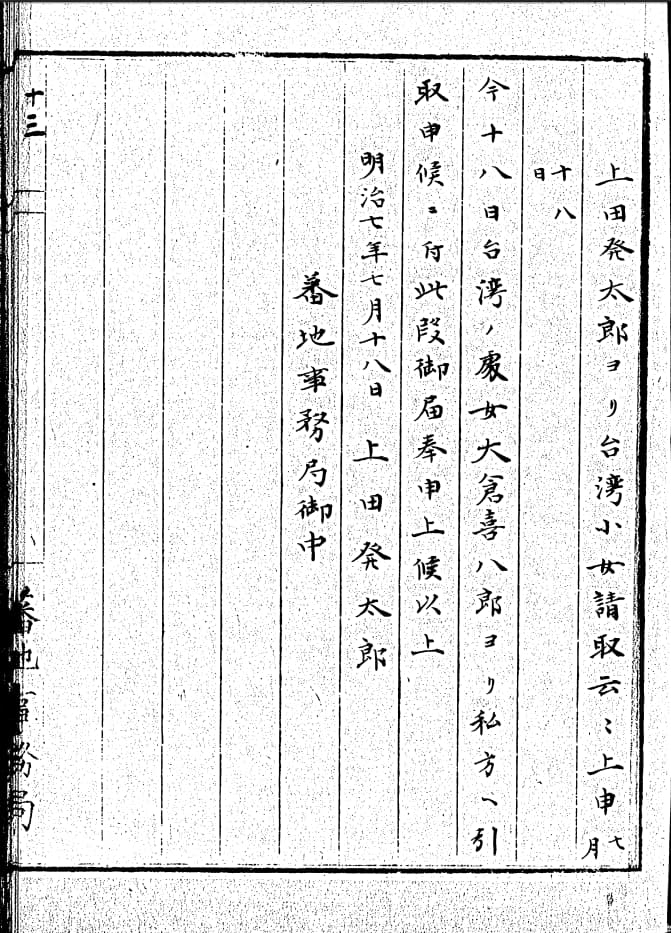 上田発太郎ヨリ台湾小女請取云々上申七月
十八日
今十八日台湾ノ處女大倉喜八郎ヨリ私方ヘ引
取申候ニ付此段御届奉申上候以上
明治七年七月十八日 上田発太郎
蕃地事務局御中
十三
蕃地事務局